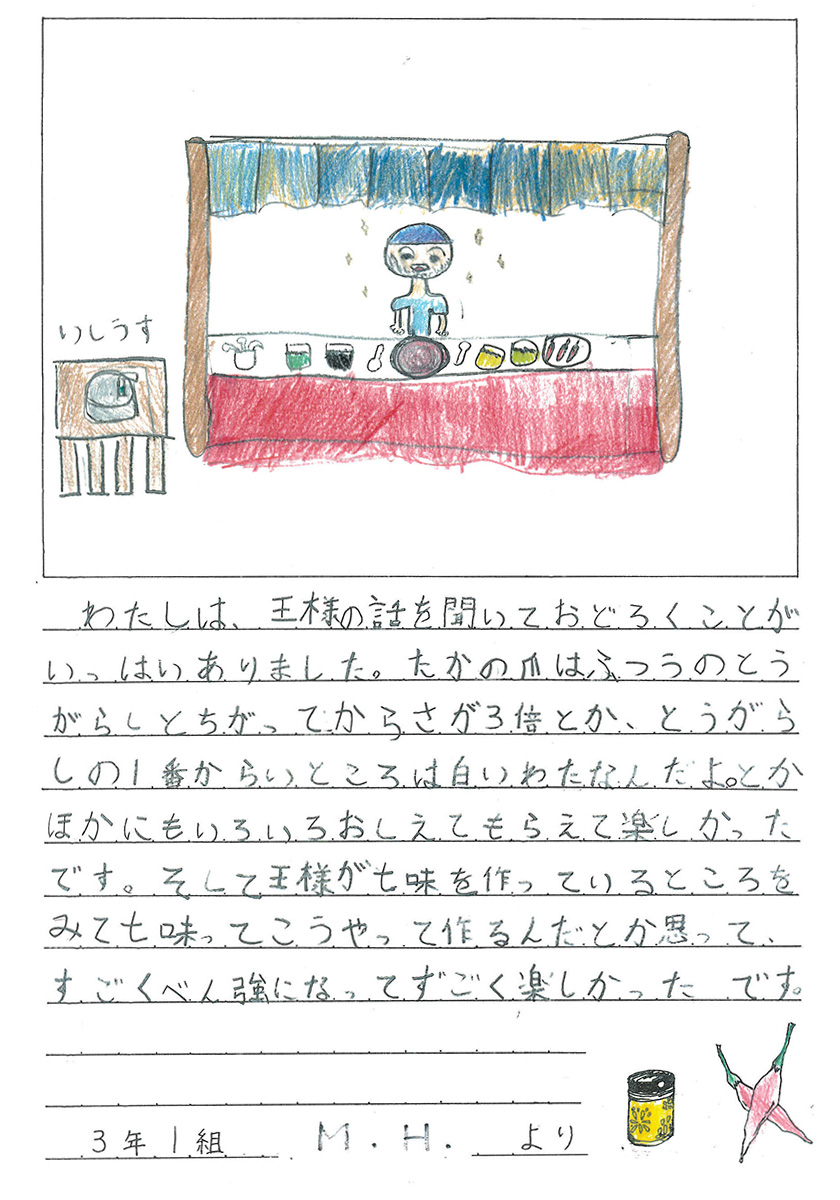 いしうす
わたしは、王様の話を聞いておどろくことが
いっはいありました。たかの爪はふつうのとう
がらしとちがってからさが3倍とか、とうがら
しの1番からいところは白いわたなんだよ。とか
ほかにもいろいろおしえてもらえて楽しかった
です。そして王様が七味を作っているところを
みて七味ってこうやって作るんだとか思って、
すごくべん強になってすごく楽しかった です。
3年1組 M.H. より